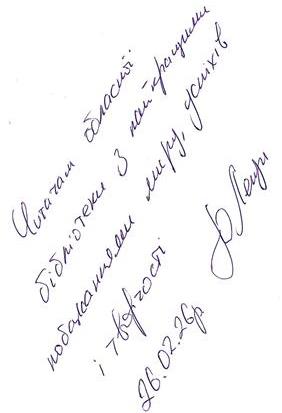 Читачам обласної
бібліотеки з найкращими
побажаннями миру, успіхів
і творчості
26.02.26р